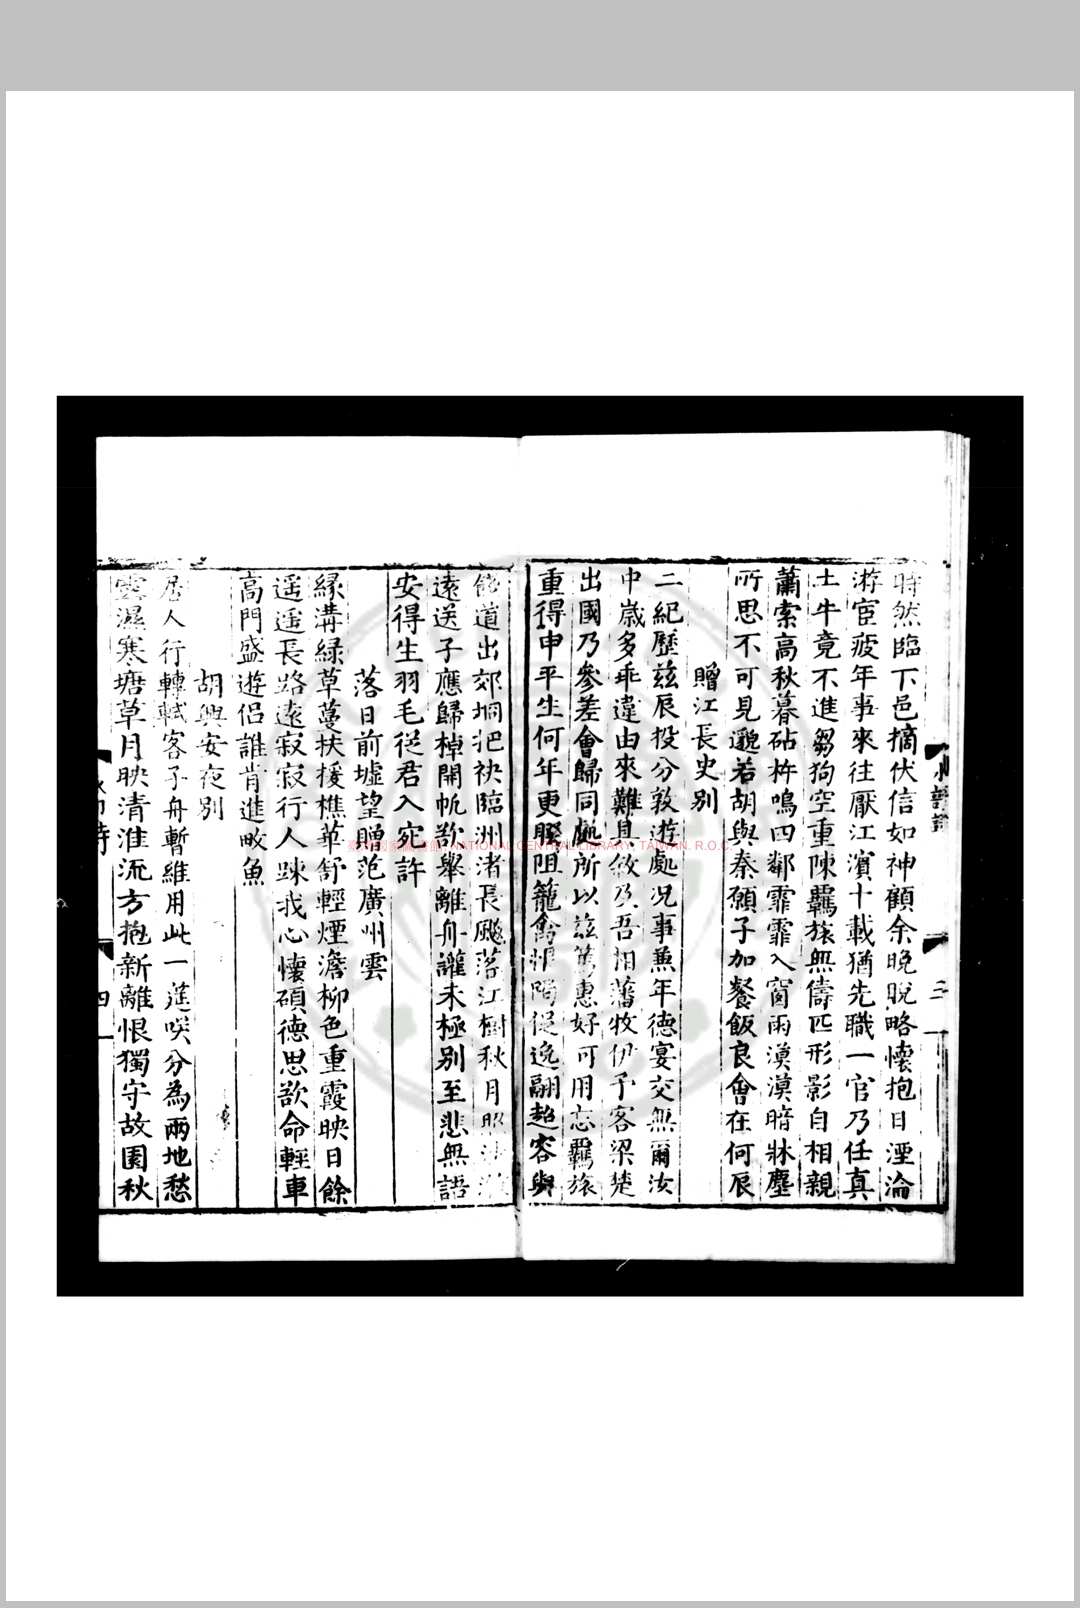 時然臨下邑摘伏信如神顧余晚脫略懷抱日湮淪
游宦疲年事來往厭江濱十載猶先職一官乃任真
土牛竟不進芻狗空重陳羈旅無儔匹形影自相親
蕭索高秋暮砧杵鳴四鄰霏霏入窗雨漠漠暗牀塵
所思不可見邈若胡與秦願子加餐飯良會在何辰
贈江長史別
二紀歷茲辰投分敦遊處况事兼年德宴交無爾汝
中歲多乖違由來難具敘及吾相藩牧伊予客梁楚
出國乃參差會歸同處所以茲篤惠好可用忘羈旅
重得申平生何年更睽阻籠禽恨踡促逸翮超容與
道出郊坰把袂臨洲渚長飈落江樹秋月照
遠送子應歸棹開帆欲舉離舟讙未極別至悲無語
安得生羽毛從君入宛許
落日前墟望贈范廣州雲
緣溝綠草蔓扶楥樵華舒輕煙澹柳色重霞映日餘
遥遥長路遠寂寂行人踈我心懷碩德思欲命輕車
高門盛遊侶誰肯進畋魚
胡興安夜別
居人行轉軾客子舟暫維用此一莚咲分為兩地愁
露濕寒塘草月映清淮流方抱新離恨獨守故園秋
三
四
NATIONAL CENTRAL LIBRARY, TAIWAN. R.O.C.